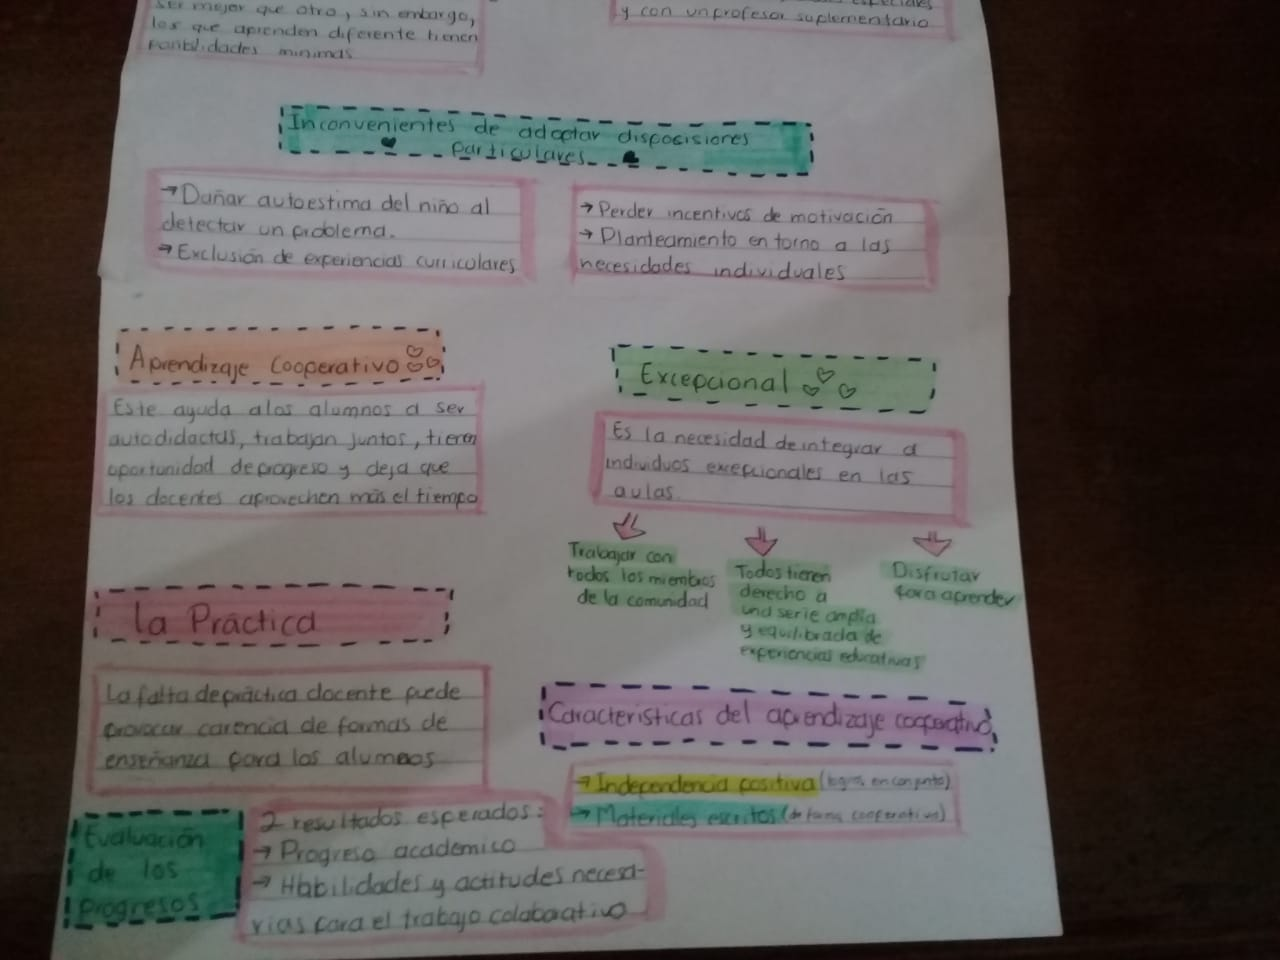 ser mejor que otro, sin embargo,
los que aprenden diferente tienen
posibilidades minimas
y con un profesor suplementario
Inconvenientes de adoptar disposisiones
particulares
→ Dañar autoestima del niño al
detectar un problema.
→ Exclusión de experiencias curriculares
→ Perder incentivos de motivación
→ Planteamiento en torno a las
necesidades individuales
Aprendizaje Cooperativo
Este ayuda a los alumnos a ser
autodidactas, trabajan juntos, tienen
oportunidad de progreso y deja que
los docentes aprovechen más el tiempo
Excepcional
Es la necesidad de integrar a
individuos excepcionales en las
aulas
Trabajar con
todos los miembros
de la comunidad
Todos tienen
derecho a
una serie amplia
y equilibrada de
experiencias educativas
Disfrutar
para aprender
La Práctica
La falta de práctica docente puede
provocar carencia de formas de
enseñanza para los alumnos
Características del aprendizaje cooperativo
→ Independencia positiva (logros en conjunto)
→ Materiales escritos (de forma cooperativa)
Evaluación
de los
progresos
2 resultados esperados:
→ Progreso académico
→ Habilidades y actitudes necesa-
rias para el trabajo colaborativo